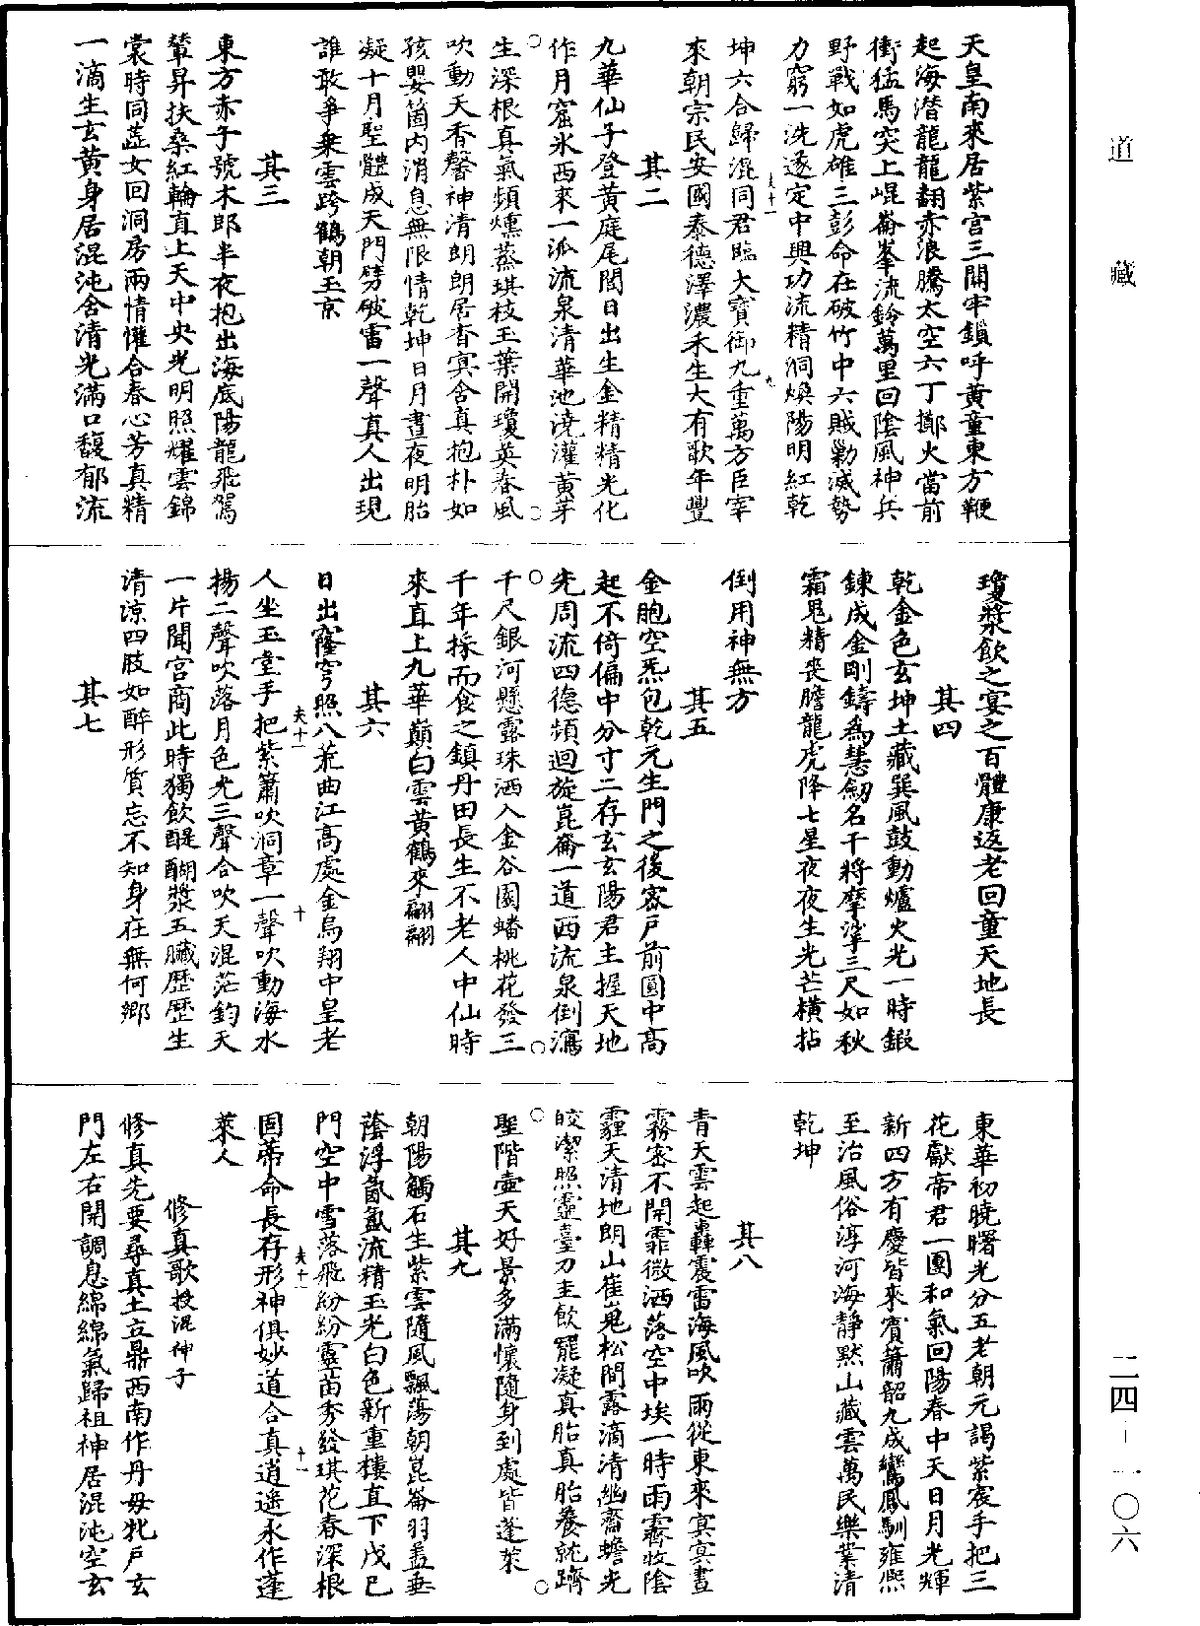 天皇南來居紫宮三關牢鎖呼黃童東方鞭
起海潛龍龍翻赤浪騰太空六丁擲火當前
衝猛馬突上崐崙峯流鈴萬里回陰風神兵
野戰如虎雄三彭命在破竹中六賊勦滅勢
力窮一洗遂定中興功流精洞煥陽明紅乾
坤六合歸混同君臨大寶御九重萬方臣宰
來朝宗民安國泰德澤濃禾生大有歌年豐
其二
九華仙子登黃庭尾閭日出生金精精光化
作月窟氷西來一泒流泉清華池澆灌黃芽
生深根真氣頻燻蒸琪枝玉葉開瓊英春風
吹動天香馨神清朗朗居杳㝠含真抱朴如
孩嬰箇內消息無限情乾坤日月晝夜明胎
凝十月聖體成天門劈破雷一聲真人出現
誰敢爭乗雲跨鶴朝玉京
其三
東方赤子號木郎半夜抱出海底陽龍飛駕
輦昇扶桑紅輪直上天中央光明照耀雲錦
裳時同蓝女回洞房兩情懽合春心芳真精
一滴生玄黃身居混沌含清光滿口馥郁流
瓊漿飲之宴之百體康返老回童天地長
其四
乾金色玄坤土藏巽風鼓動爐火光一時鍜
鍊成金剛鑄為慧劒名干將摩挲三尺如秋
霜鬼精喪膽龍虎降七星夜夜生光芒橫拈
倒用神無方
其五
金胞空炁包乾元生門之後密戶前圓中高
起不倚偏中分寸二存玄玄陽君主握天地
先周流四德頻迴旋崑崙一道西流泉倒瀉
千尺銀河懸露珠洒入金谷園蟠桃花發三
千年採而食之鎮丹田長生不老人中仙時
來直上九華巔白雲黃鶴來翩翩
其六
日出窿穹照八荒曲江高處金烏翔中皇老
人坐玉堂手把紫簫吹洞章一聲吹動海水
揚二聲吹落月色光三聲合吹天混茫鈞天
一片聞宮商此時獨飲醍醐漿五臟歷歷生
清涼四肢如醉形質忘不知身在無何鄉
其七
東華初曉曙光分五老朝元謁紫宸手把三
花獻帝君一團和氣回陽春中天日月光輝
新四方有慶皆來賓簫韶九成鸞鳳馴雍熙
至治風俗淳河海靜默山藏雲萬民樂業清
乾坤
其八
青天雲起轟震雷海風吹雨從東來㝠㝠晝
霧密不開霏微洒落空中埃一時雨霽牧陰
霾天清地朗山崔嵬松間露滴清幽齋蟾光
皎潔照靈臺刀圭飲罷凝真胎真胎養就躋
聖階壺天好景多滿懷隨身到處皆蓬萊
其九
朝陽觸石生紫雲隨風飄蕩朝崑崙羽蓋垂
蔭浮氤氳流精玉光白色新重樓直下戊己
門空中雪落飛紛紛靈苗秀發琪花春深根
固蒂命長存形神俱妙道合真逍遥永作蓬
萊人
修真歌授混伸子
修真先要尋真土立鼎西南作丹毋牝戶玄
門左右開調息綿綿氣歸祖神居混沌空玄
道藏
二四-一〇六